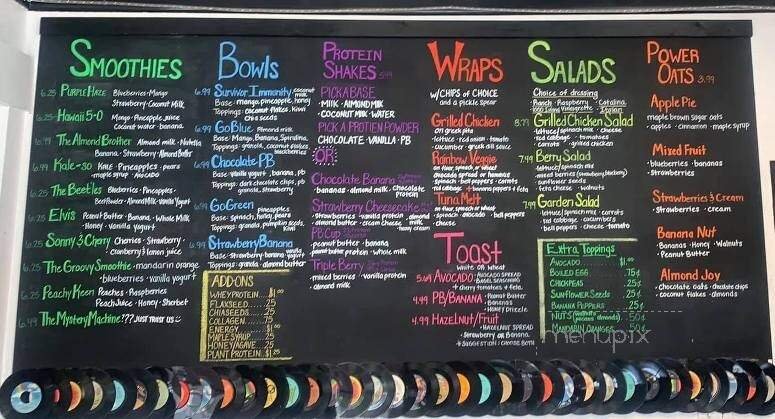 SMOOTHIES
6.25 PURPLE HAZE Blueberries · Mango
Strawberry · Coconut Milk
6.25 Hawaii 5-0 Mango · Pineapple juice
Coconut water · banana
The Almond Brother Almond milk · Nutella
Banana · Strawberry · Almond Butter
Kale-so Kale · Pineapples · pears
maple syrup · Avocado
6.25 The Beetles Blueberries · Pineapples
Beet Powder · Almond Milk · Vanilla Yogurt
6.25 Elvis Peanut Butter · Banana · Whole Milk
Honey · Vanilla yogurt
6.25 Sonny & Cherry Cherries · Strawberry
Cranberry & lemon juice
6.25 The Groovy Smoothie · mandarin orange
· blueberries · vanilla yogurt
6.25 Peachy Keen Peaches · Raspberry
Peach Juice · Honey · Sherbet
6.99 The Mystery Machine??? Just trust us
BOWLS
6.99 Survivor Immunity coconut milk
Base: mango, pineapple, honey
Toppings: coconut flakes, Kiwi
Chia seeds
6.99 Go Blue Almond milk
Base: Mango, Banana, Spirulina,
Toppings: granola, coconut flakes
blackberries
6.99 Chocolate PB
Base: vanilla yogurt, banana, pb
Toppings: dark chocolate chips, pb
granola, strawberry
6.99 Go Green pineapples
Base: spinach, honey, pears
Toppings: granola, pumpkin seeds
Kiwi
6.99 Strawberry Banana
Base: Strawberry · banana vanilla yogurt
Toppings: granola, almond butter
ADD-ONS
WHEY PROTEIN....$1.00
FLAXSEED.......25
CHIA SEEDS......25
COLLAGEN.......75
ENERGY.........$1.00
MAPLE SYRUP....25
HONEY/AGAVE....25
PLANT PROTEIN..$1.25
PROTEIN
SHAKES 5.99
PICK A BASE
· MILK · ALMOND MILK
· COCONUT MILK · WATER
PICK A PROTIEN POWDER
CHOCOLATE · VANILLA · PB
OR
Chocolate Banana
· bananas · almond milk · chocolate protein
Strawberry Cheesecake
· strawberries · vanilla protein · almond
· almond butter · cream cheese · milk
honey
PB Cup
· peanut butter · banana
· peanut butter protein · whole milk
Triple Berry
· mixed berries · vanilla protein
· almond milk
WRAPS
W/CHIPS OF CHOICE
and a pickle spear
Grilled Chicken
on greek pita
· lettuce · red onion · tomato
· cucumber · greek dill sauce
Rainbow Veggie
on flour, spinach or wheat
avocado spread or hummus
· spinach · bell peppers · carrots
· red cabbage · banana peppers + feta
Tuna Melt
on flour, spinach or wheat
· spinach · avocado · bell peppers
· cheese
TOAST
white or wheat
5.69 AVOCADO: AVOCADO SPREAD
· BAGEL SEASONING
+ cherry tomatoes + feta
4.99 PB/BANANA: · Peanut Butter
· Bananas
· Honey
· Drizzle
4.99 HAZELNUT/FRUIT
· HAZELNUT SPREAD
· Strawberry or Banana
* SUGGESTION: CHOOSE BOTH
SALADS
Choice of dressing
· Ranch · Raspberry · Catalina
· 1000 Island Vinaigrette · Italian
8.79 Grilled Chicken Salad
· lettuce/spinach mix · cheese
· red cabbage · tomatoes
· carrots · grilled chicken
7.49 Berry Salad
· lettuce/spinach mix
· mixed berries (strawberry, blackberry)
· sunflower seeds
· feta cheese · walnuts
7.49 Garden Salad
· lettuce/spinach mix · carrots
· red cabbage · cucumbers
· bell peppers · cheese · tomato
EXTRA TOPPINGS
AVOCADO.........$1.00
BOILED EGG.......75¢
CHICKPEAS........25¢
SUNFLOWER SEEDS..25¢
BANANA PEPPERS...25¢
NUTS (walnuts pecans almonds)..50¢
MANDARIN ORANGES..50¢
POWER
OATS 3.99
Apple Pie
maple brown sugar oats
· apples · cinnamon · maple syrup
Mixed Fruit
· blueberries · bananas
· strawberries
Strawberries & Cream
· strawberries · cream
Banana Nut
· Bananas · Honey · Walnuts
· Peanut Butter
Almond Joy
· Chocolate oats · chocolate chips
· coconut flakes · almonds
menupix